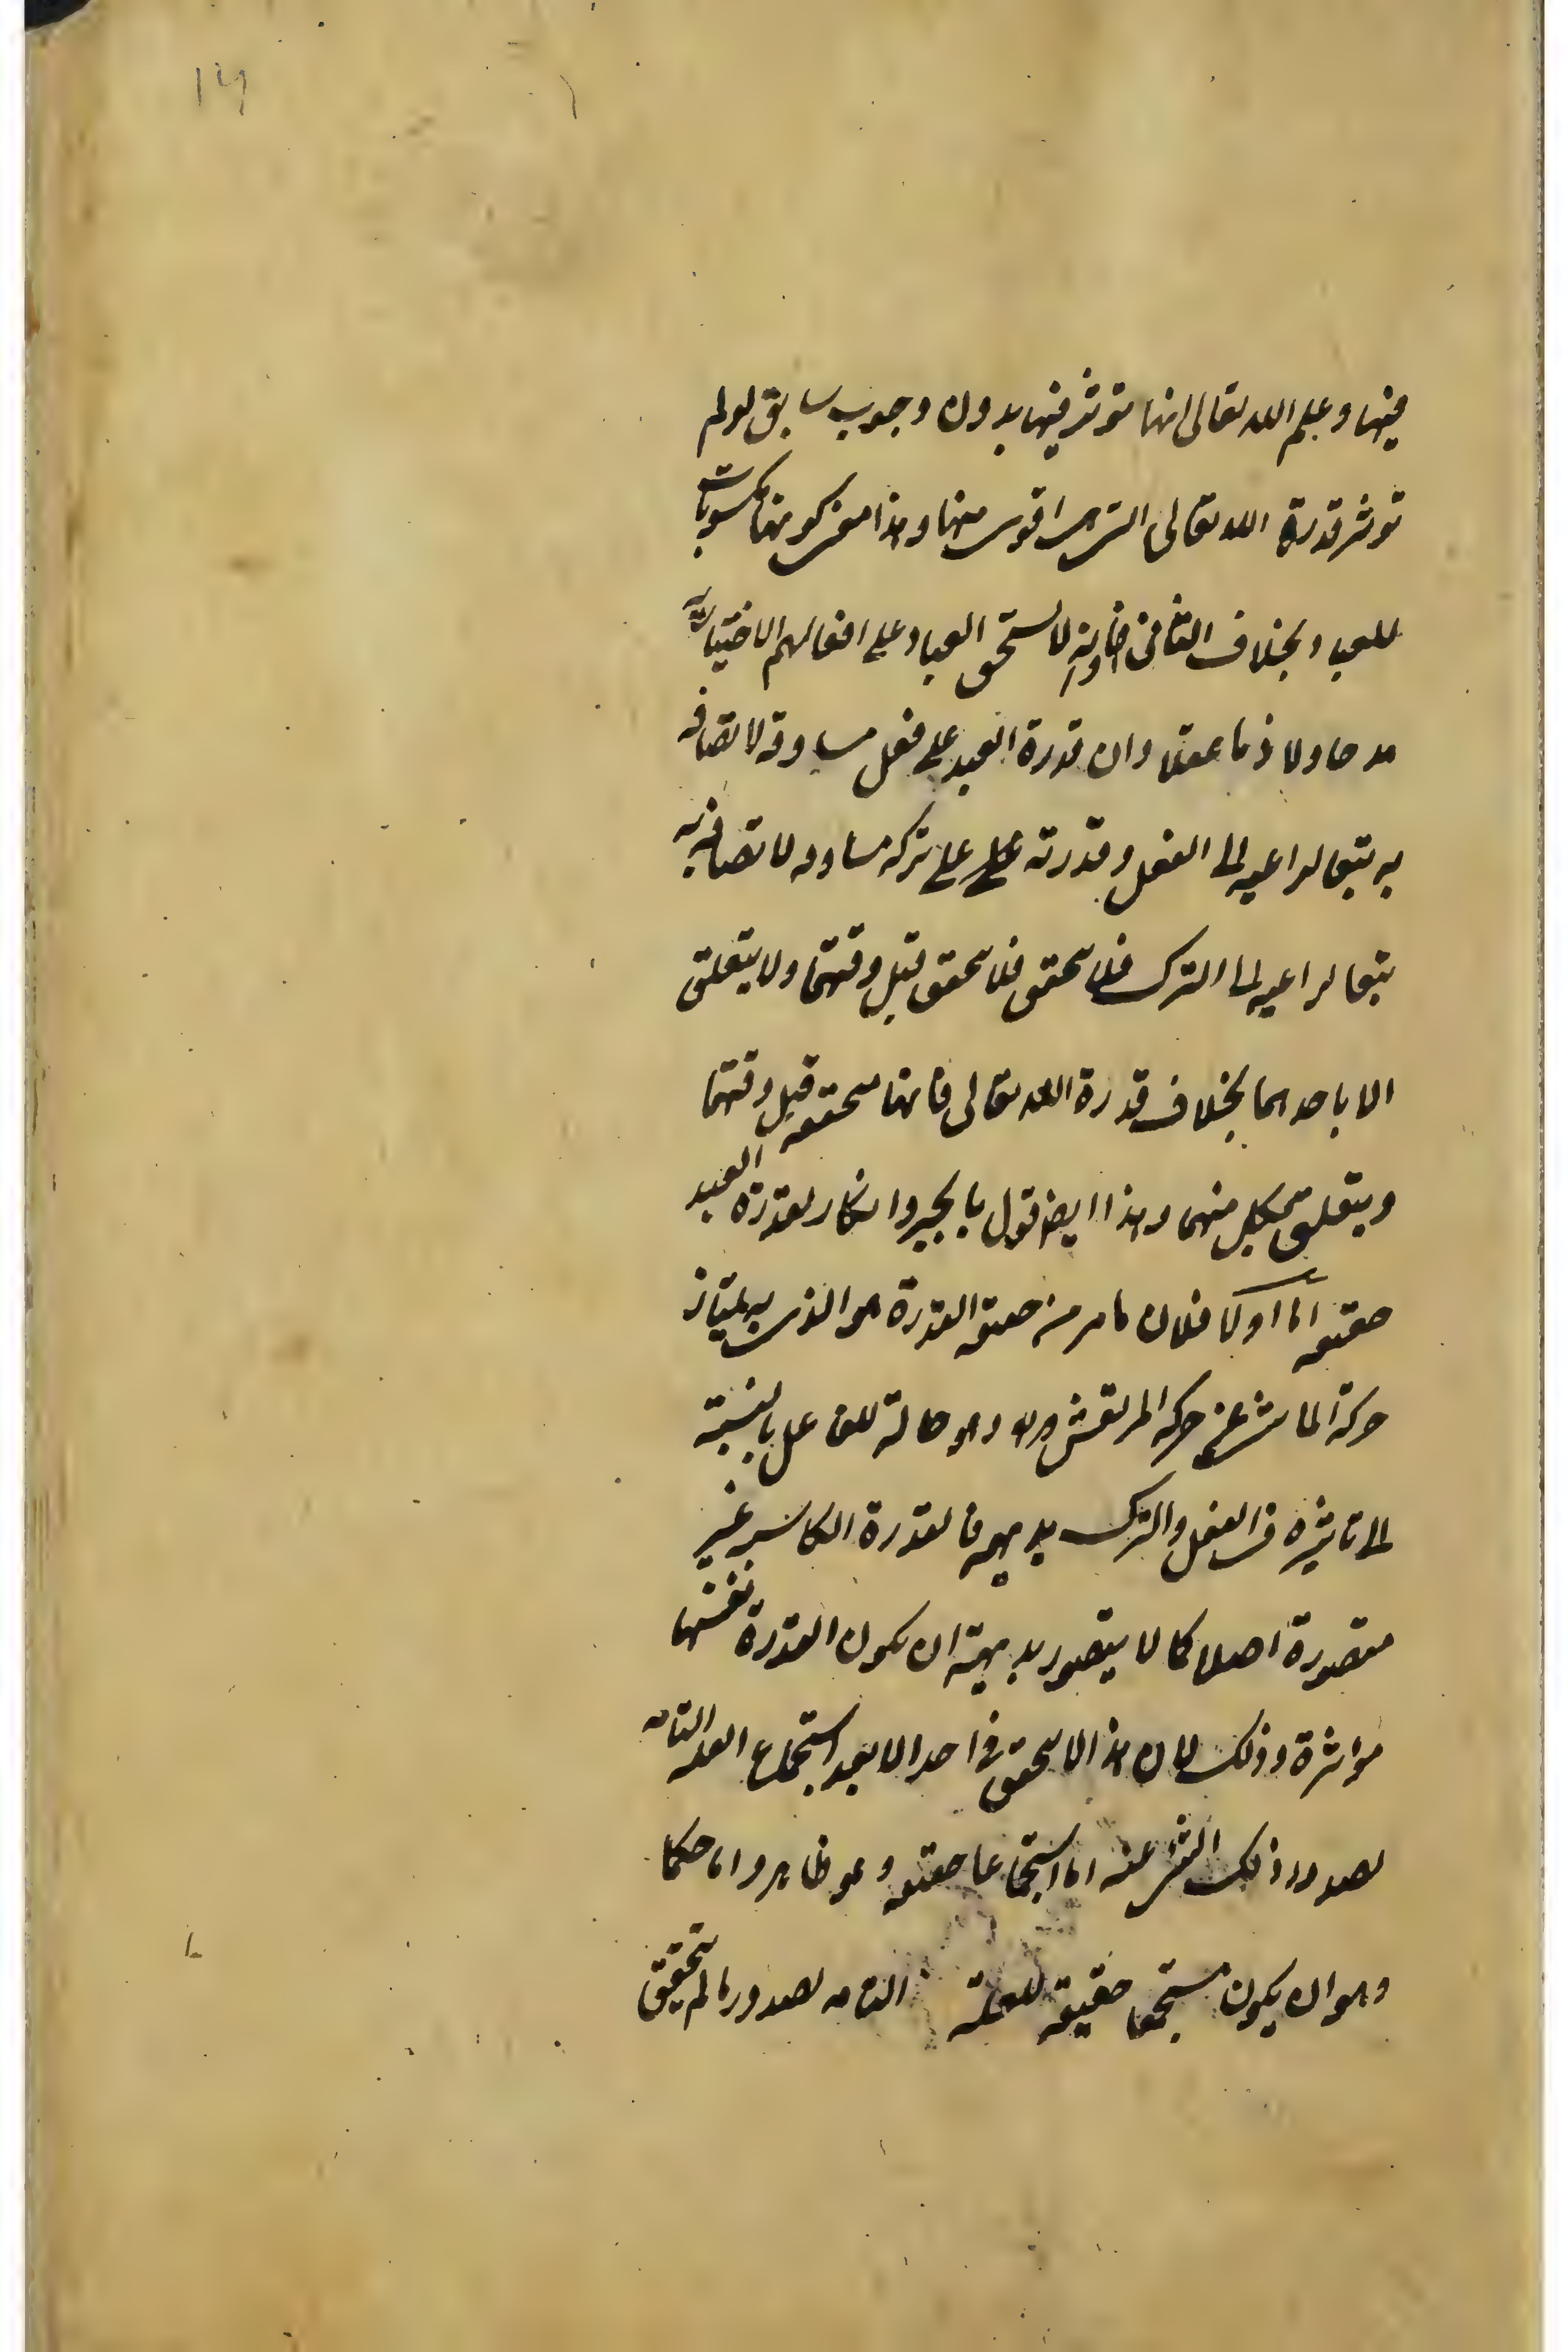 ۱۴
فيها وعلم الله تعالى انها تؤثر فيها بدون وجوب سابق لو لم
تؤثر قدرة الله تعالى التي هي اقوى منها وهذا معنى كونها مكسوبات
للعباد وبخلاف الثاني لا يستحق العباد على افعالهم الاختيارية
مدحا ولا ذما عقلا وان قدرة العبد على فعل مساوقة لاتصافه
به بتبع الداعية الى الفعل وقدرته على على تركه مساوقة لاتصافه به
بتبع الداعية الى الترك فلا تتحقق فلا تتحقق قبل وقتهما ولا يتعلق
الا باحدهما بخلاف قدرة الله تعالى فانها متحققة قبل وقتهما
ويتعلق بكل منهما وهذا ايضا قول بالجبر وانكار لقدرة العبد
حقيقة اما اولا فلان ما مر من حقيقة القدرة هو الذي به يمتاز
حركة الماشي عن حركة المرتعش وهو حالة للفاعل بالنسبة
الى تاثيره في الفعل والترك بديهة فالقدرة الكاسبة غير
متصورة اصلا كما لا يتصور بديهة ان يكون القدرة نفسها
مؤثرة وذلك لان هذا لا يتحقق في احد الا بعد استجماع العلة التامة
لصدور ذلك الشئ عنه اما استجماعا حقيقة وهو ظاهر واما حكما
وهو ان يكون مستجمعا حقيقة للعلة التامة لصدور ما لم يتحقق